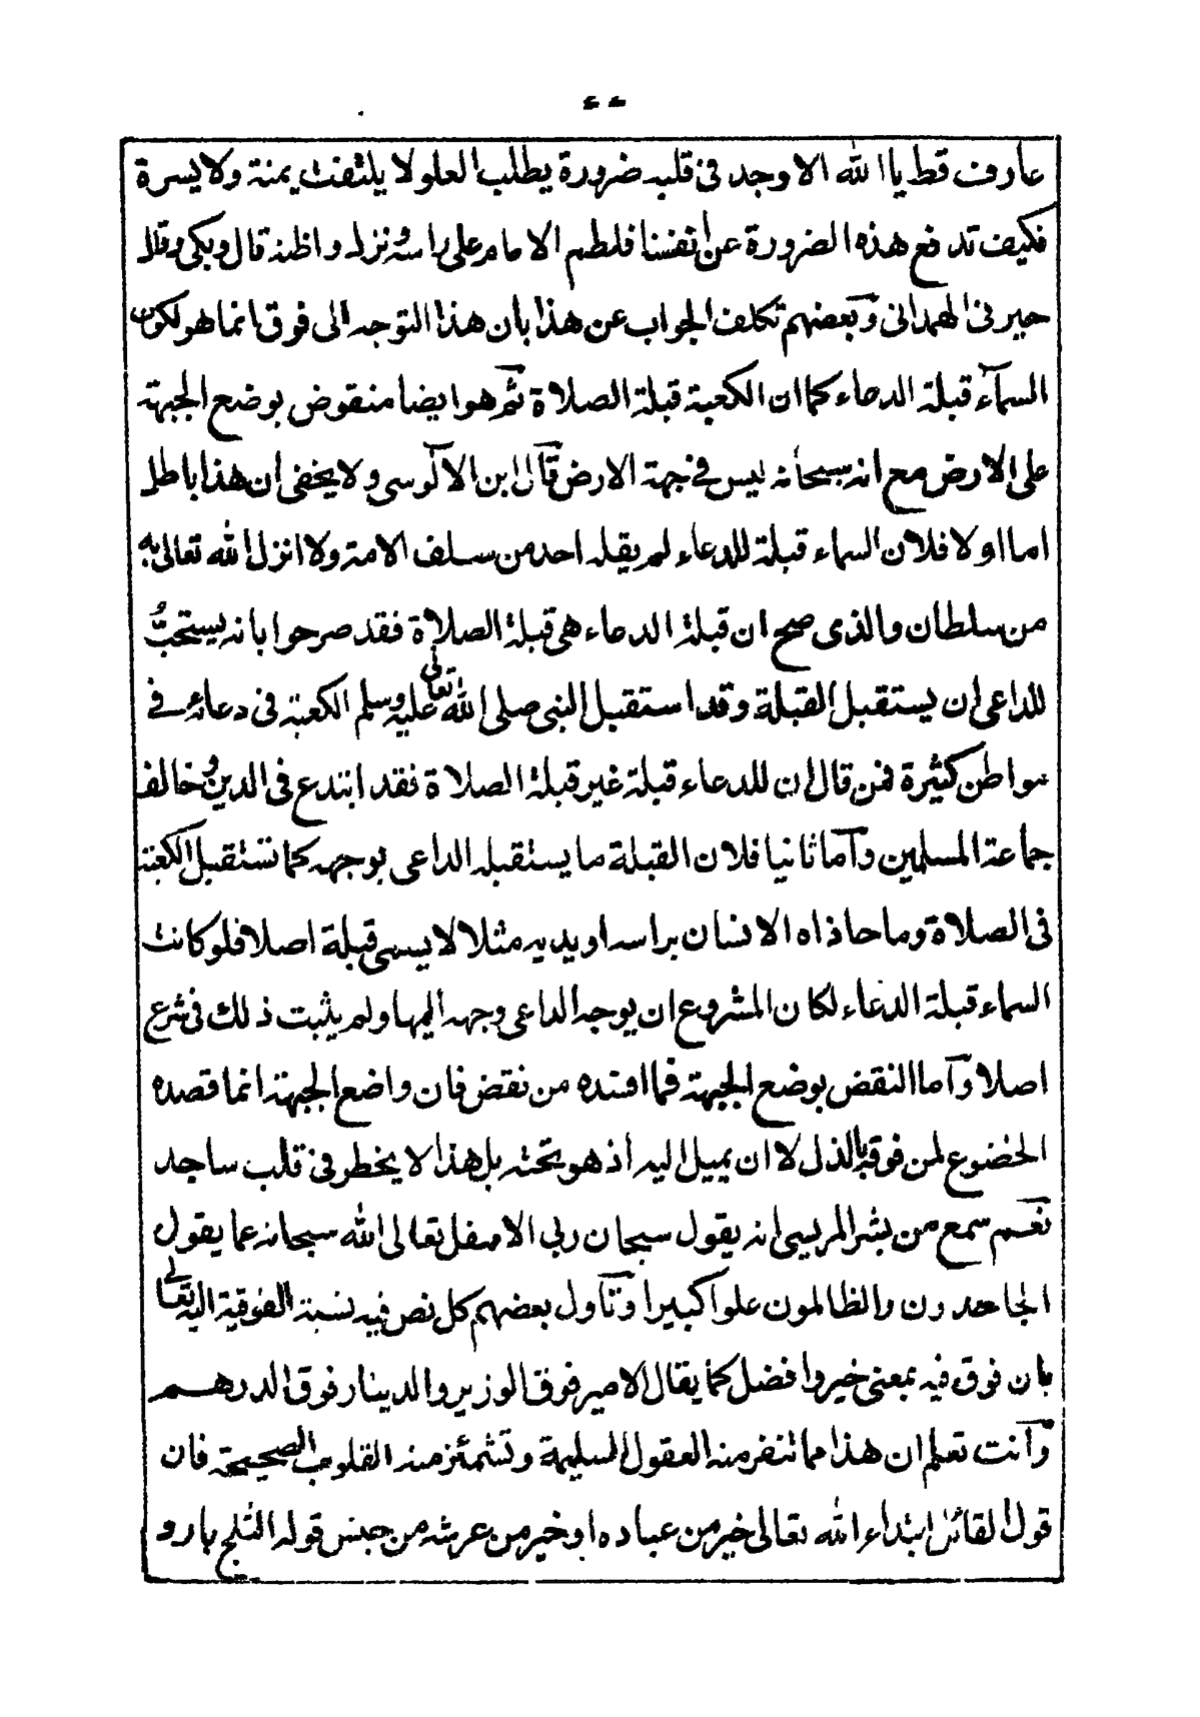 ٤٤
عارف قط يا الله الا وجد في قلبه ضرورة يطلب العلو لا يلتفت يمنة ولا يسرة
فكيف تدفع هذه الضرورة عن انفسنا فلطم الامام على راسه ونزل واظنه قال وبكى وقال
حيرني الهمداني وبعضهم تكلف الجواب عن هذا بأن هذا التوجه الى فوق انما هو لكون
السمآء قبلة الدعاء كما ان الكعبة قبلة الصلاة ثم هو ايضا منقوض بوضع الجبهة
على الارض مع انه سبحانه ليس في جهة الارض قال ابن الآلوسي ولا يخفى ان هذا باطل
اما اولا فلان السماء قبلة للدعاء لم يقله احد من سلف الامة ولا انزل الله تعالى به
من سلطان والذى صح ان قبلة الدعاء هى قبلة الصلاة فقد صرحوا بانه يستحبُّ
للداعى ان يستقبل القبلة وقد استقبل النبى صلى الله تعالى عليه وسلم الكعبة في دعائه في
مواطن كثيرة فمن قال ان للدعاء قبلة غير قبلة الصلاة فقد ابتدع في الدين وخالف
جماعة المسلمين وأما ثانيا فلان القبلة ما يستقبله الداعى بوجهه كما تستقبل الكعبة
في الصلاة وما حاذاه الانسان براسه او يديه مثلا لا يسمى قبلة اصلا فلو كانت
السماء قبلة الدعاء لكان المشروع ان يوجه الداعى وجهه اليها ولم يثبت ذلك في شرع
اصلا وأما النقض بوضع الجبهة فما افسده من نقض فان واضع الجبهة انما قصده
الخضوع لمن فوقه بالذل لا ان يميل اليه اذ هو تحته بل هذا لا يخطر في قلب ساجد
نعم سمع من بشر المريسى انه يقول سبحان ربي الاسفل تعالى الله سبحانه عما يقول
الجاحدون والظالمون علوا كبيرا وتأول بعضهم كل نص فيه نسبة الفوقية اليه تعالى
بان فوق فيه بمعنى خير وافضل كما يقال الامير فوق الوزير والدينار فوق الدرهم
وأنت تعلم ان هذا مما تنفر منه العقول السليمة وتشمئز منه القلوب الصحيحة فان
قول القائل ابتداء الله تعالى خير من عباده او خير من عرشه من جنس قوله الثلج بارد و